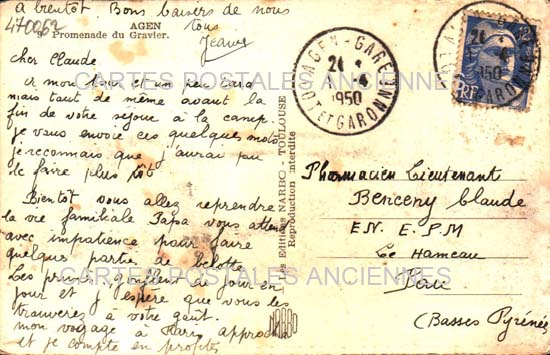 a bientôt Bons baisers de nous
tous
Jeanne
470062
AGEN
9. Promenade du Gravier.
cher Claude
a mon tour et un peu tard
mais tout de même avant la
fin de votre séjour à la camp.
je vous envoie ces quelques mots
je reconnais que j'aurai pu
le faire plus tôt
Bientôt vous allez reprendre
la vie familiale Papa vous attend
avec impatience pour faire
quelques partie de belotte
Les prunes gonflent de jour en
jour et j'espère que vous les
trouverez à votre goût.
mon voyage à Paris approche
et je compte en profiter
Les Editions NARBO - TOULOUSE
Reproduction interdite
NARBO
AGEN-GARE
24
1950
LOT ET GARONNE
AGEN-GARE
1950
GARONNE
RF
12
Pharmacien Lieutenant
Benceny Claude
E N. E. P M
Le Hameau
Pau
(Basses Pyrénées
CARTES POSTALES ANCIENNES
CARTES POSTALES ANCIENNES